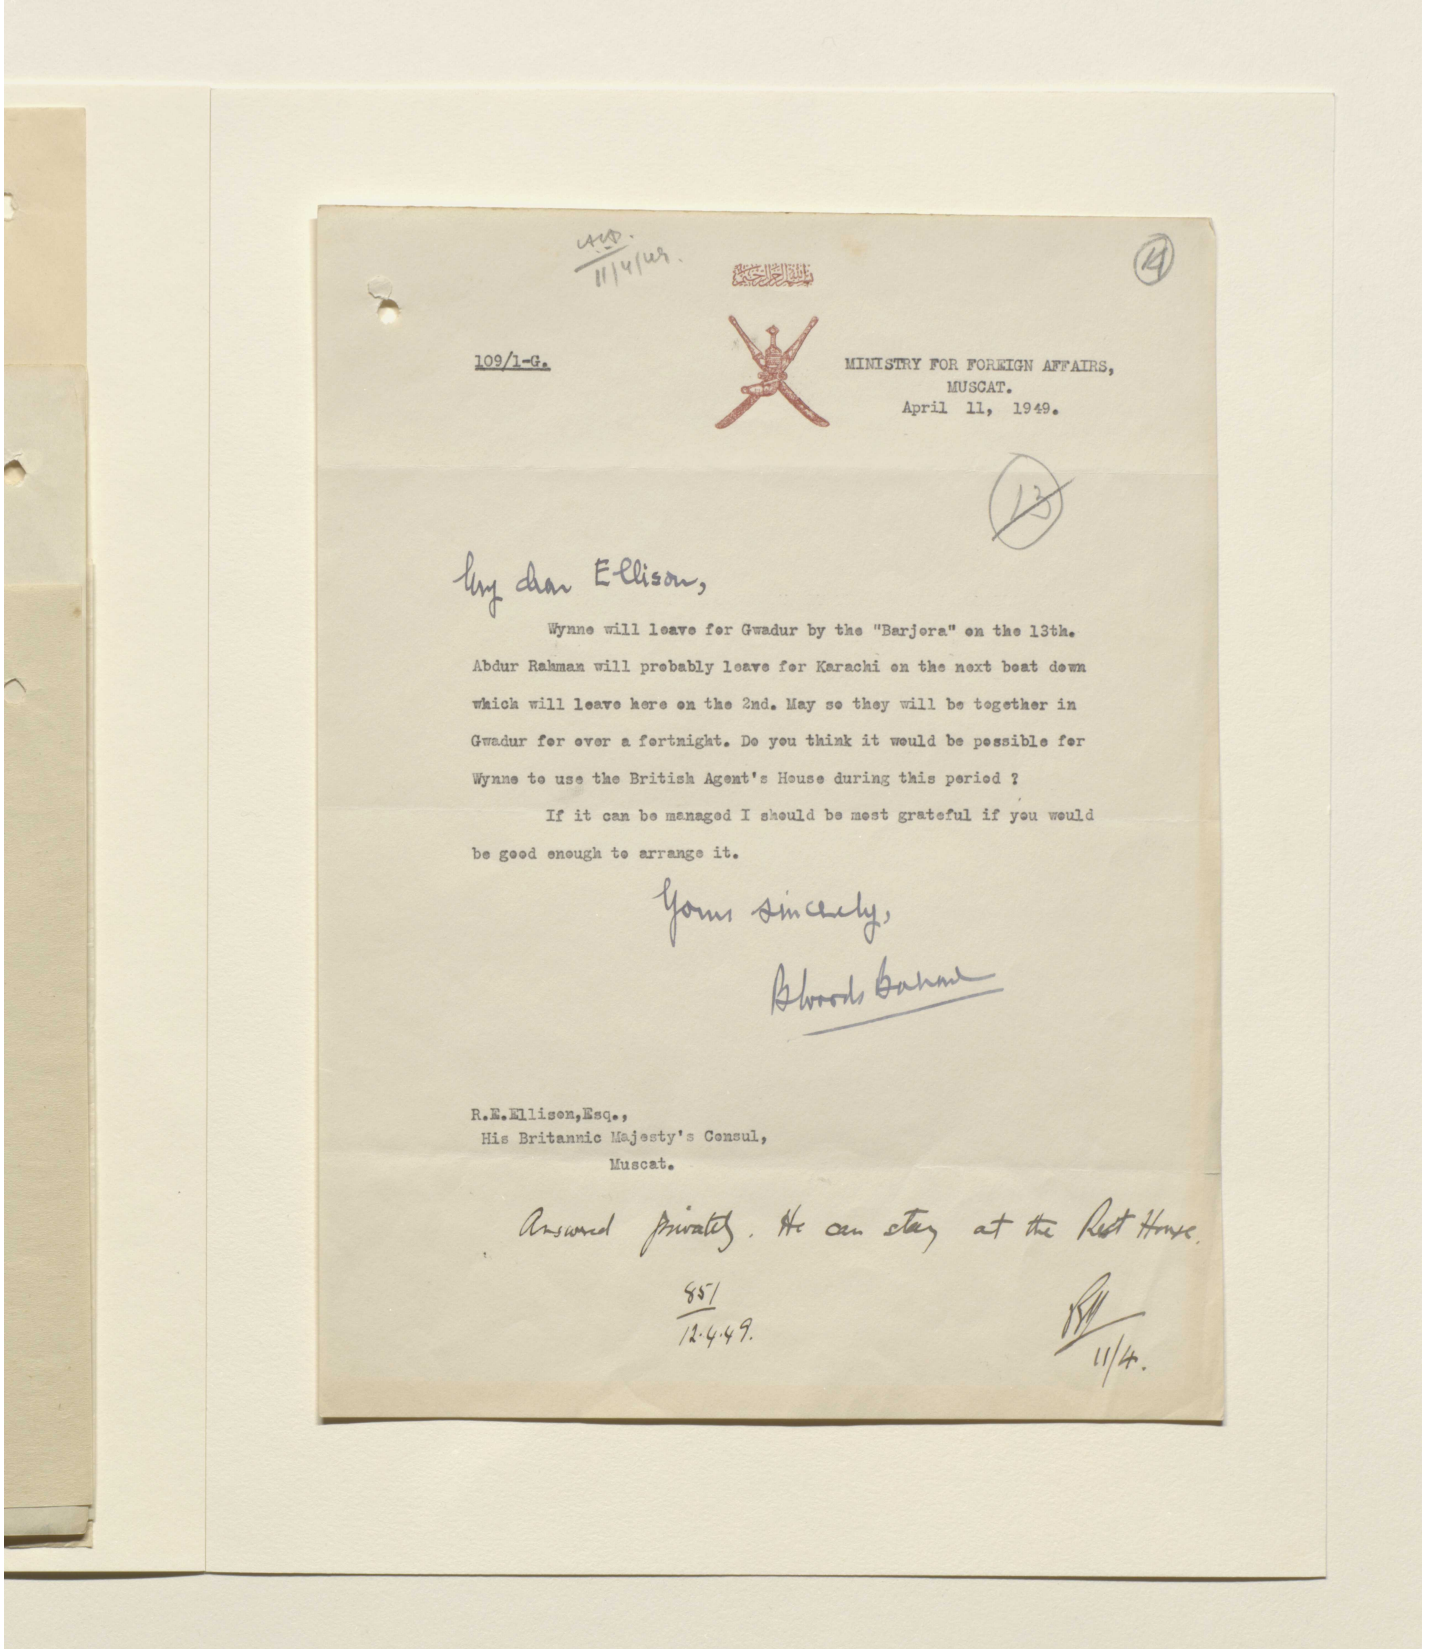 11/4/49.
14
بسم الله الرحمن الرحيم
109/1-G.
MINISTRY FOR FOREIGN AFFAIRS,
MUSCAT.
April 11, 1949.
13
My dear Ellison,
Wynne will leave for Gwadur by the "Barjora" on the 13th.
Abdur Rahman will probably leave for Karachi on the next boat down
which will leave here on the 2nd. May so they will be together in
Gwadur for over a fortnight. Do you think it would be possible for
Wynne to use the British Agent's House during this period ?
If it can be managed I should be most grateful if you would
be good enough to arrange it.
Yours sincerely,
BWoods Ballard
R.E.Ellison,Esq.,
His Britannic Majesty's Consul,
Muscat.
Answered privately. He can stay at the Rest House.
851
12.4.49.
11/4.